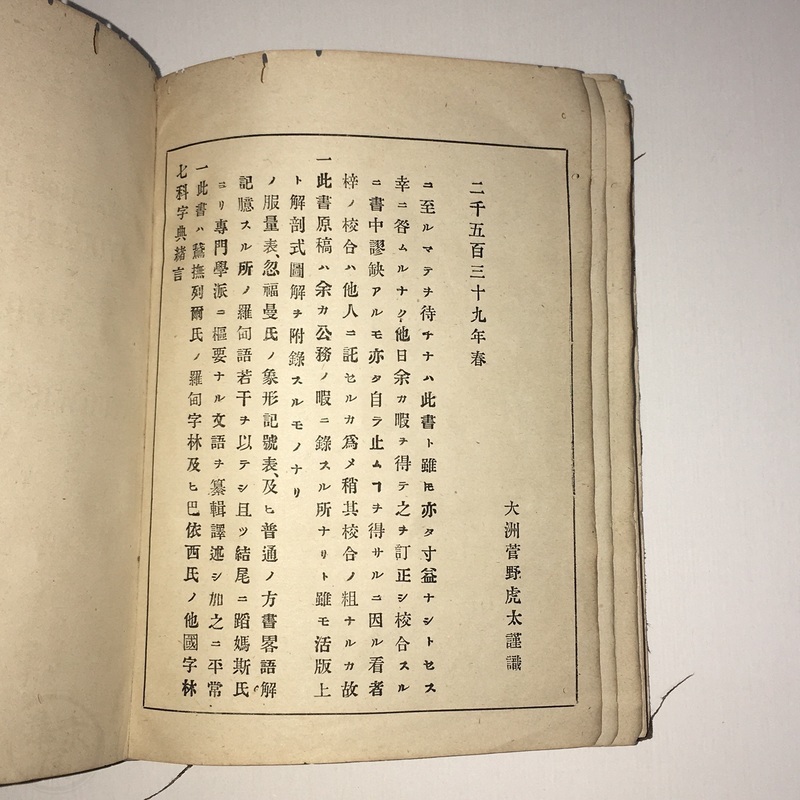 七科字典緒言
一此書ハ鵞撫列爾氏ノ羅甸字林及ヒ巴依西氏ノ他國字林
ヨリ專門學派ニ樞要ナル文語ヲ纂輯譯述シ加之ニ平常
記臆スル所ノ羅甸語若干ヲ以テシ且ツ結尾ニ蹈媽斯氏
ノ服量表、忽福曼氏ノ象形記號表、及ヒ普通ノ方書畧語解
ト解剖式圖解ヲ附錄スルモノナリ
一此書原稿ハ余カ公務ノ暇ニ錄スル所ナリト雖モ活版上
梓ノ校合ハ他人ニ託セルカ爲メ稍其校合ノ粗ナルカ故
ニ書中謬缺アルモ亦タ自ラ止ムヿヲ得サルニ因ル看者
幸ニ咎ムルナク他日余カ暇ヲ得テ之ヲ訂正シ校合スル
ニ至ルマテヲ待チナハ此書ト雖𪜈亦タ寸益ナシトセス
二千五百三十九年春
大洲菅野虎太謹識